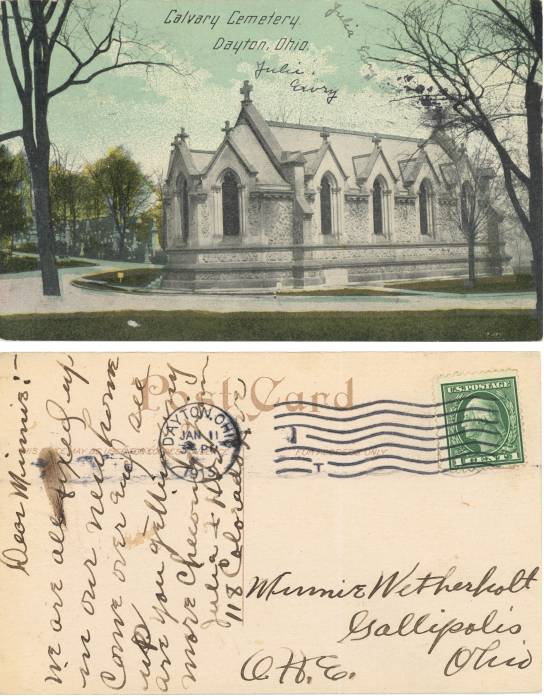 Calvary Cemetery.
Dayton, Ohio.
Julia
Julia.
Post Card
DAYTON, OHIO
JAN 11
U.S. POSTAGE
1 CENT 1
Dear Minnie:-
We are all fixed up
in our new home
Come over and see
us
are you getting any
more chewing
Julia &
118 Colorado
Minnie Wetherholt
Gallipolis
O.H.E. Ohio